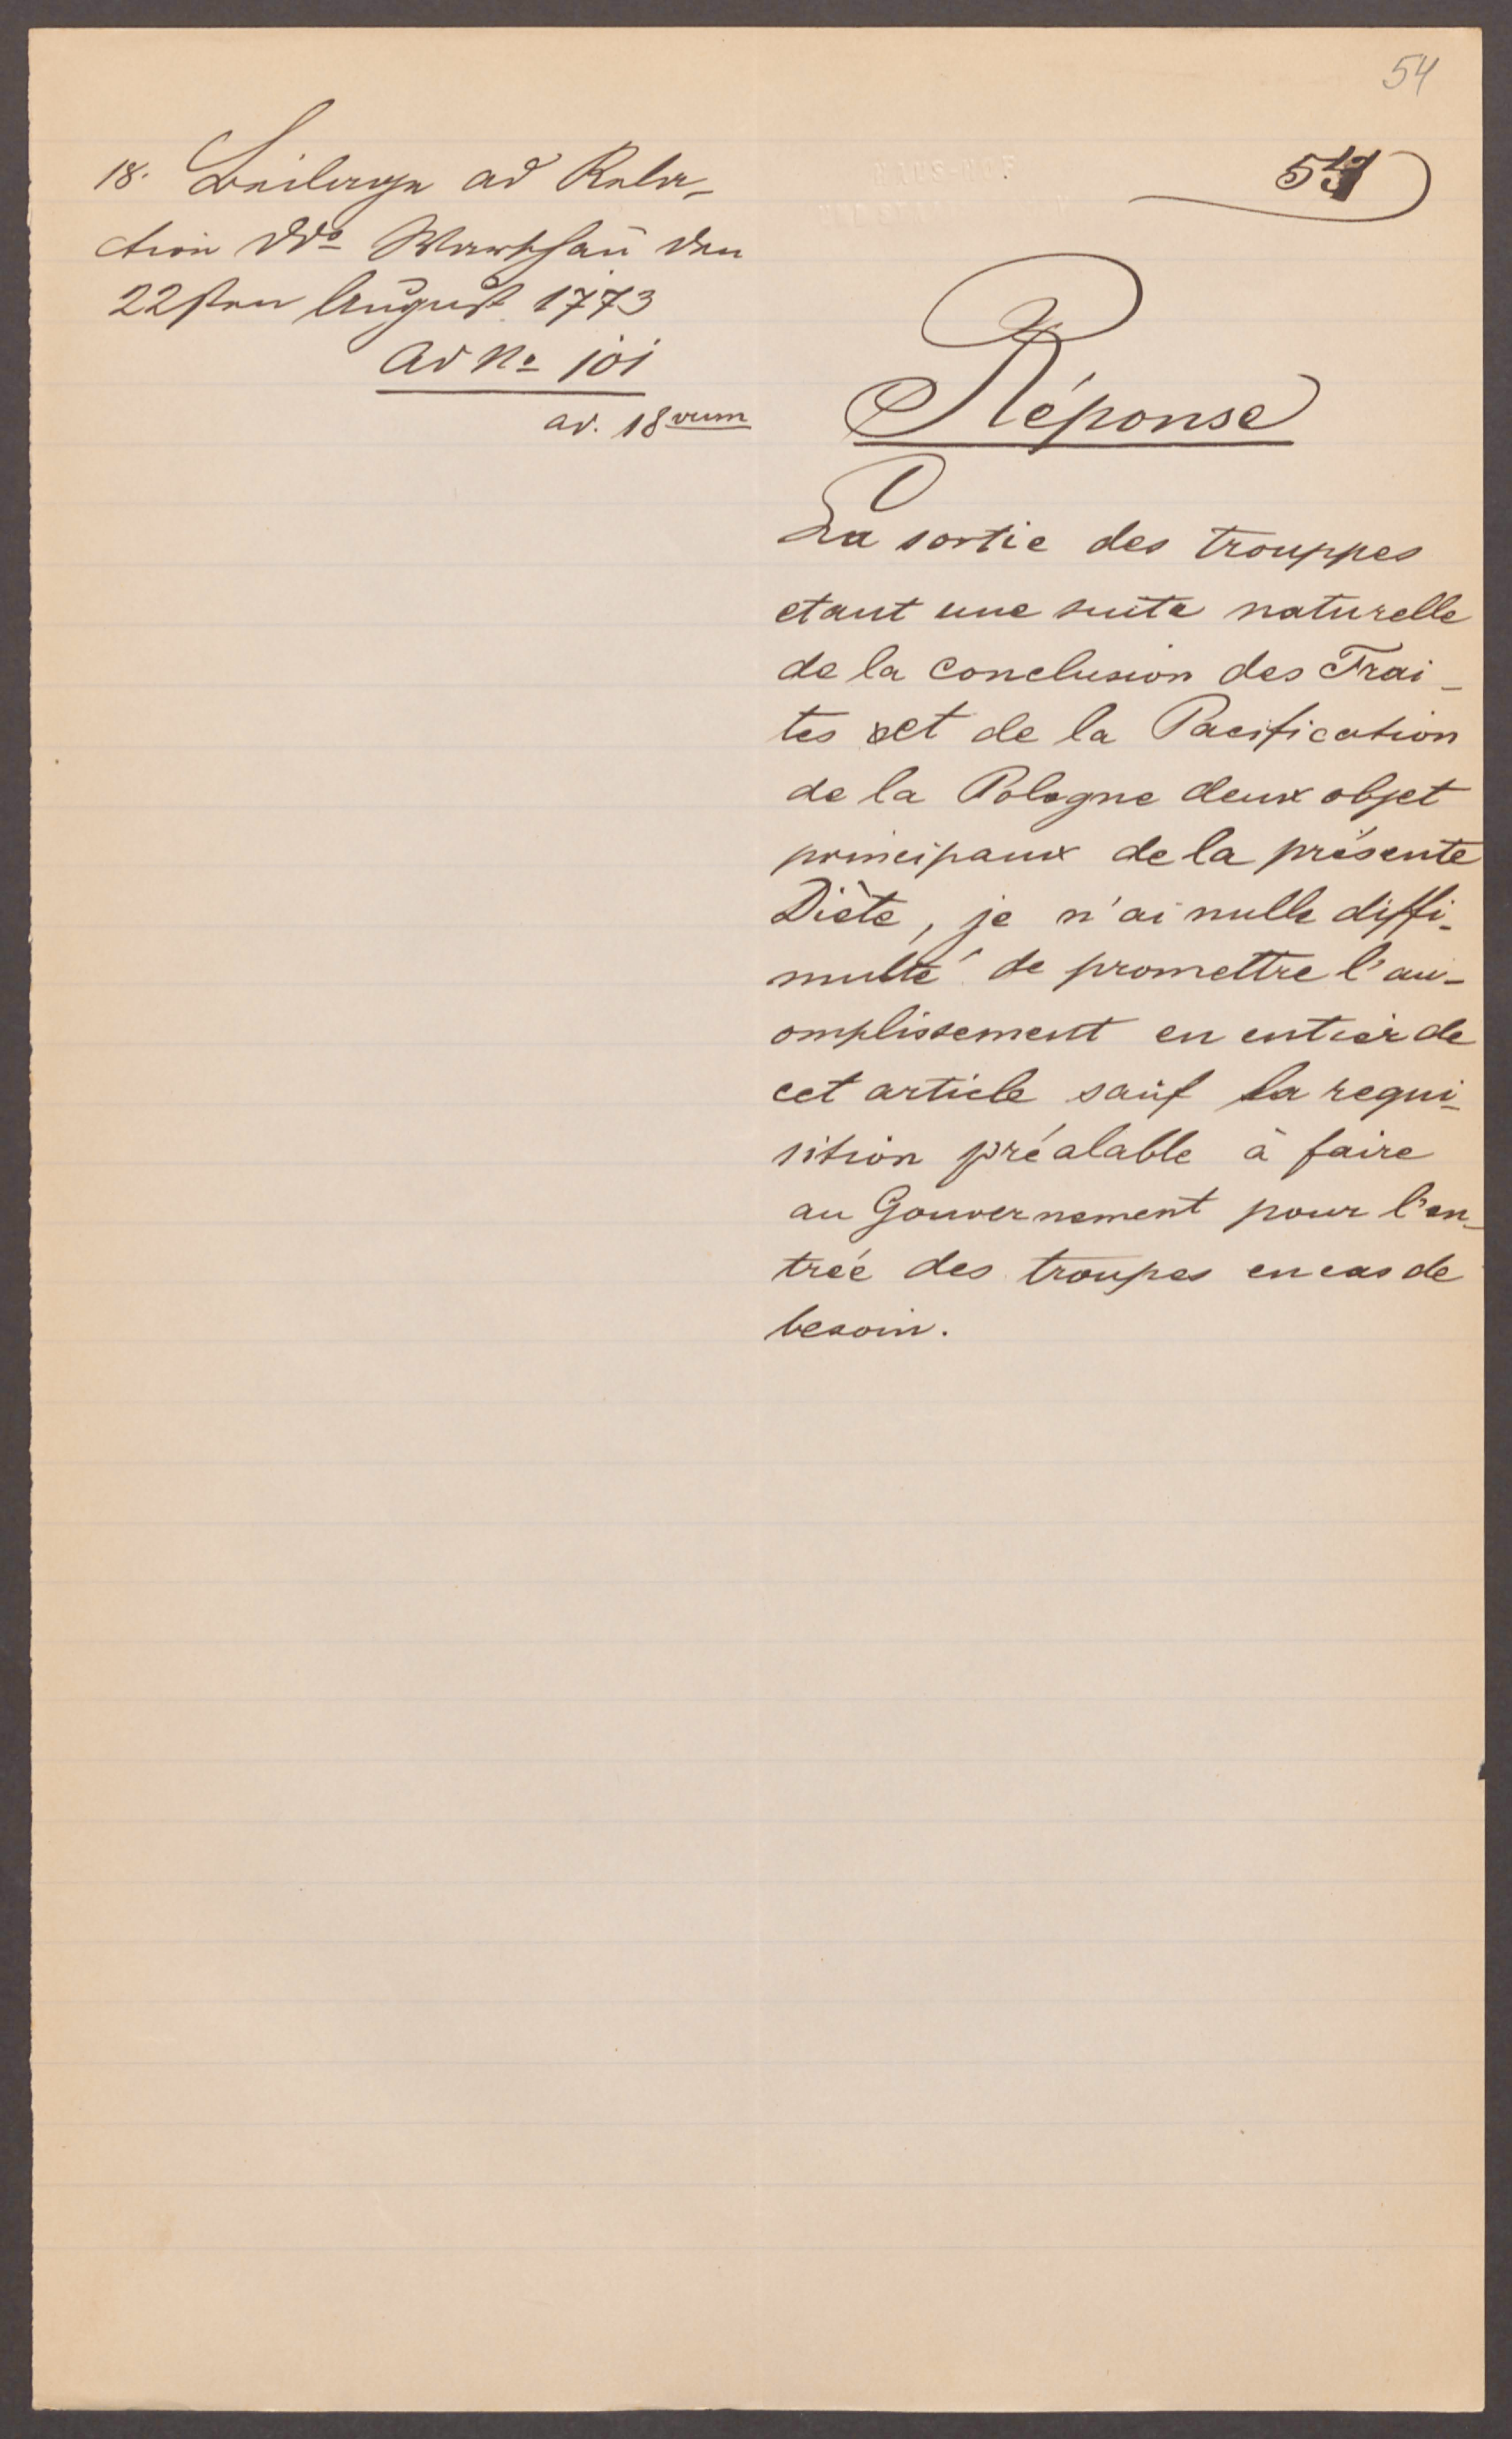 54
54
18. Beilage ad Rela-
ction ddo Warschau den
22sten August 1773
ad No 101
ad. 18vum
Réponse
La sortie des trouppes
etant une suite naturelle
de la conclusion des Trai-
tes et de la Pacification
de la Pologne deux objet
principaux de la présente
Diète, je n'ai nulle diffi-
multé de promettre l'au-
omplissement en entier de
cet article sauf la requi-
sition préalable à faire
au Gouvernement pour l'en-
treé des troupes en cas de
besoin.